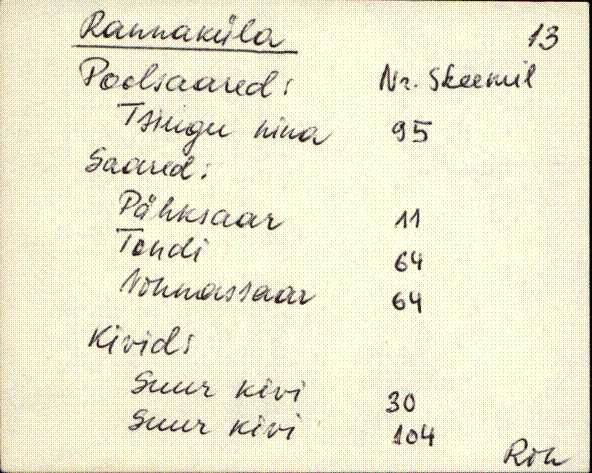 Rannaküla 13
Poolsaared: Nr. Skeemil
Tsiugu nina 95
Saared:
Pähksaar 11
Tondi 64
Nonnassaar 64
Kivid:
Suur kivi 30
Suur kivi 104
Rõu